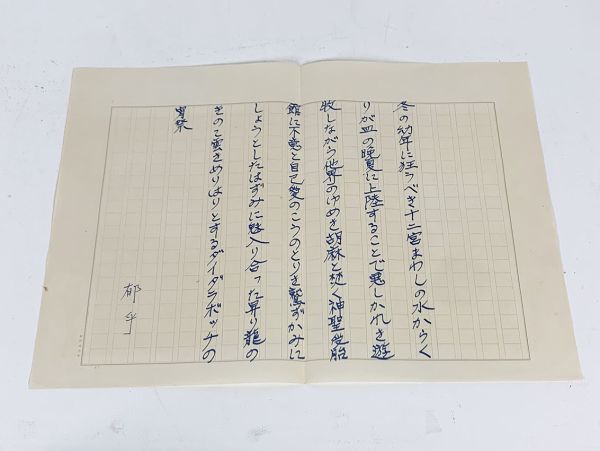 冬の幼年に狂うべき十二宮まわしの水からく
りが皿の晩夏に上陸することで悪しかれき遊
牧しながら世界のゆめを胡麻と焚く神聖受胎
館に不悪と自己愛のこうのとりを鷲ずかみに
しょうとしたはずみに魅入り合った昇り龍の
きのこ雲をめりはりとするダイダラボッチの
郁乎